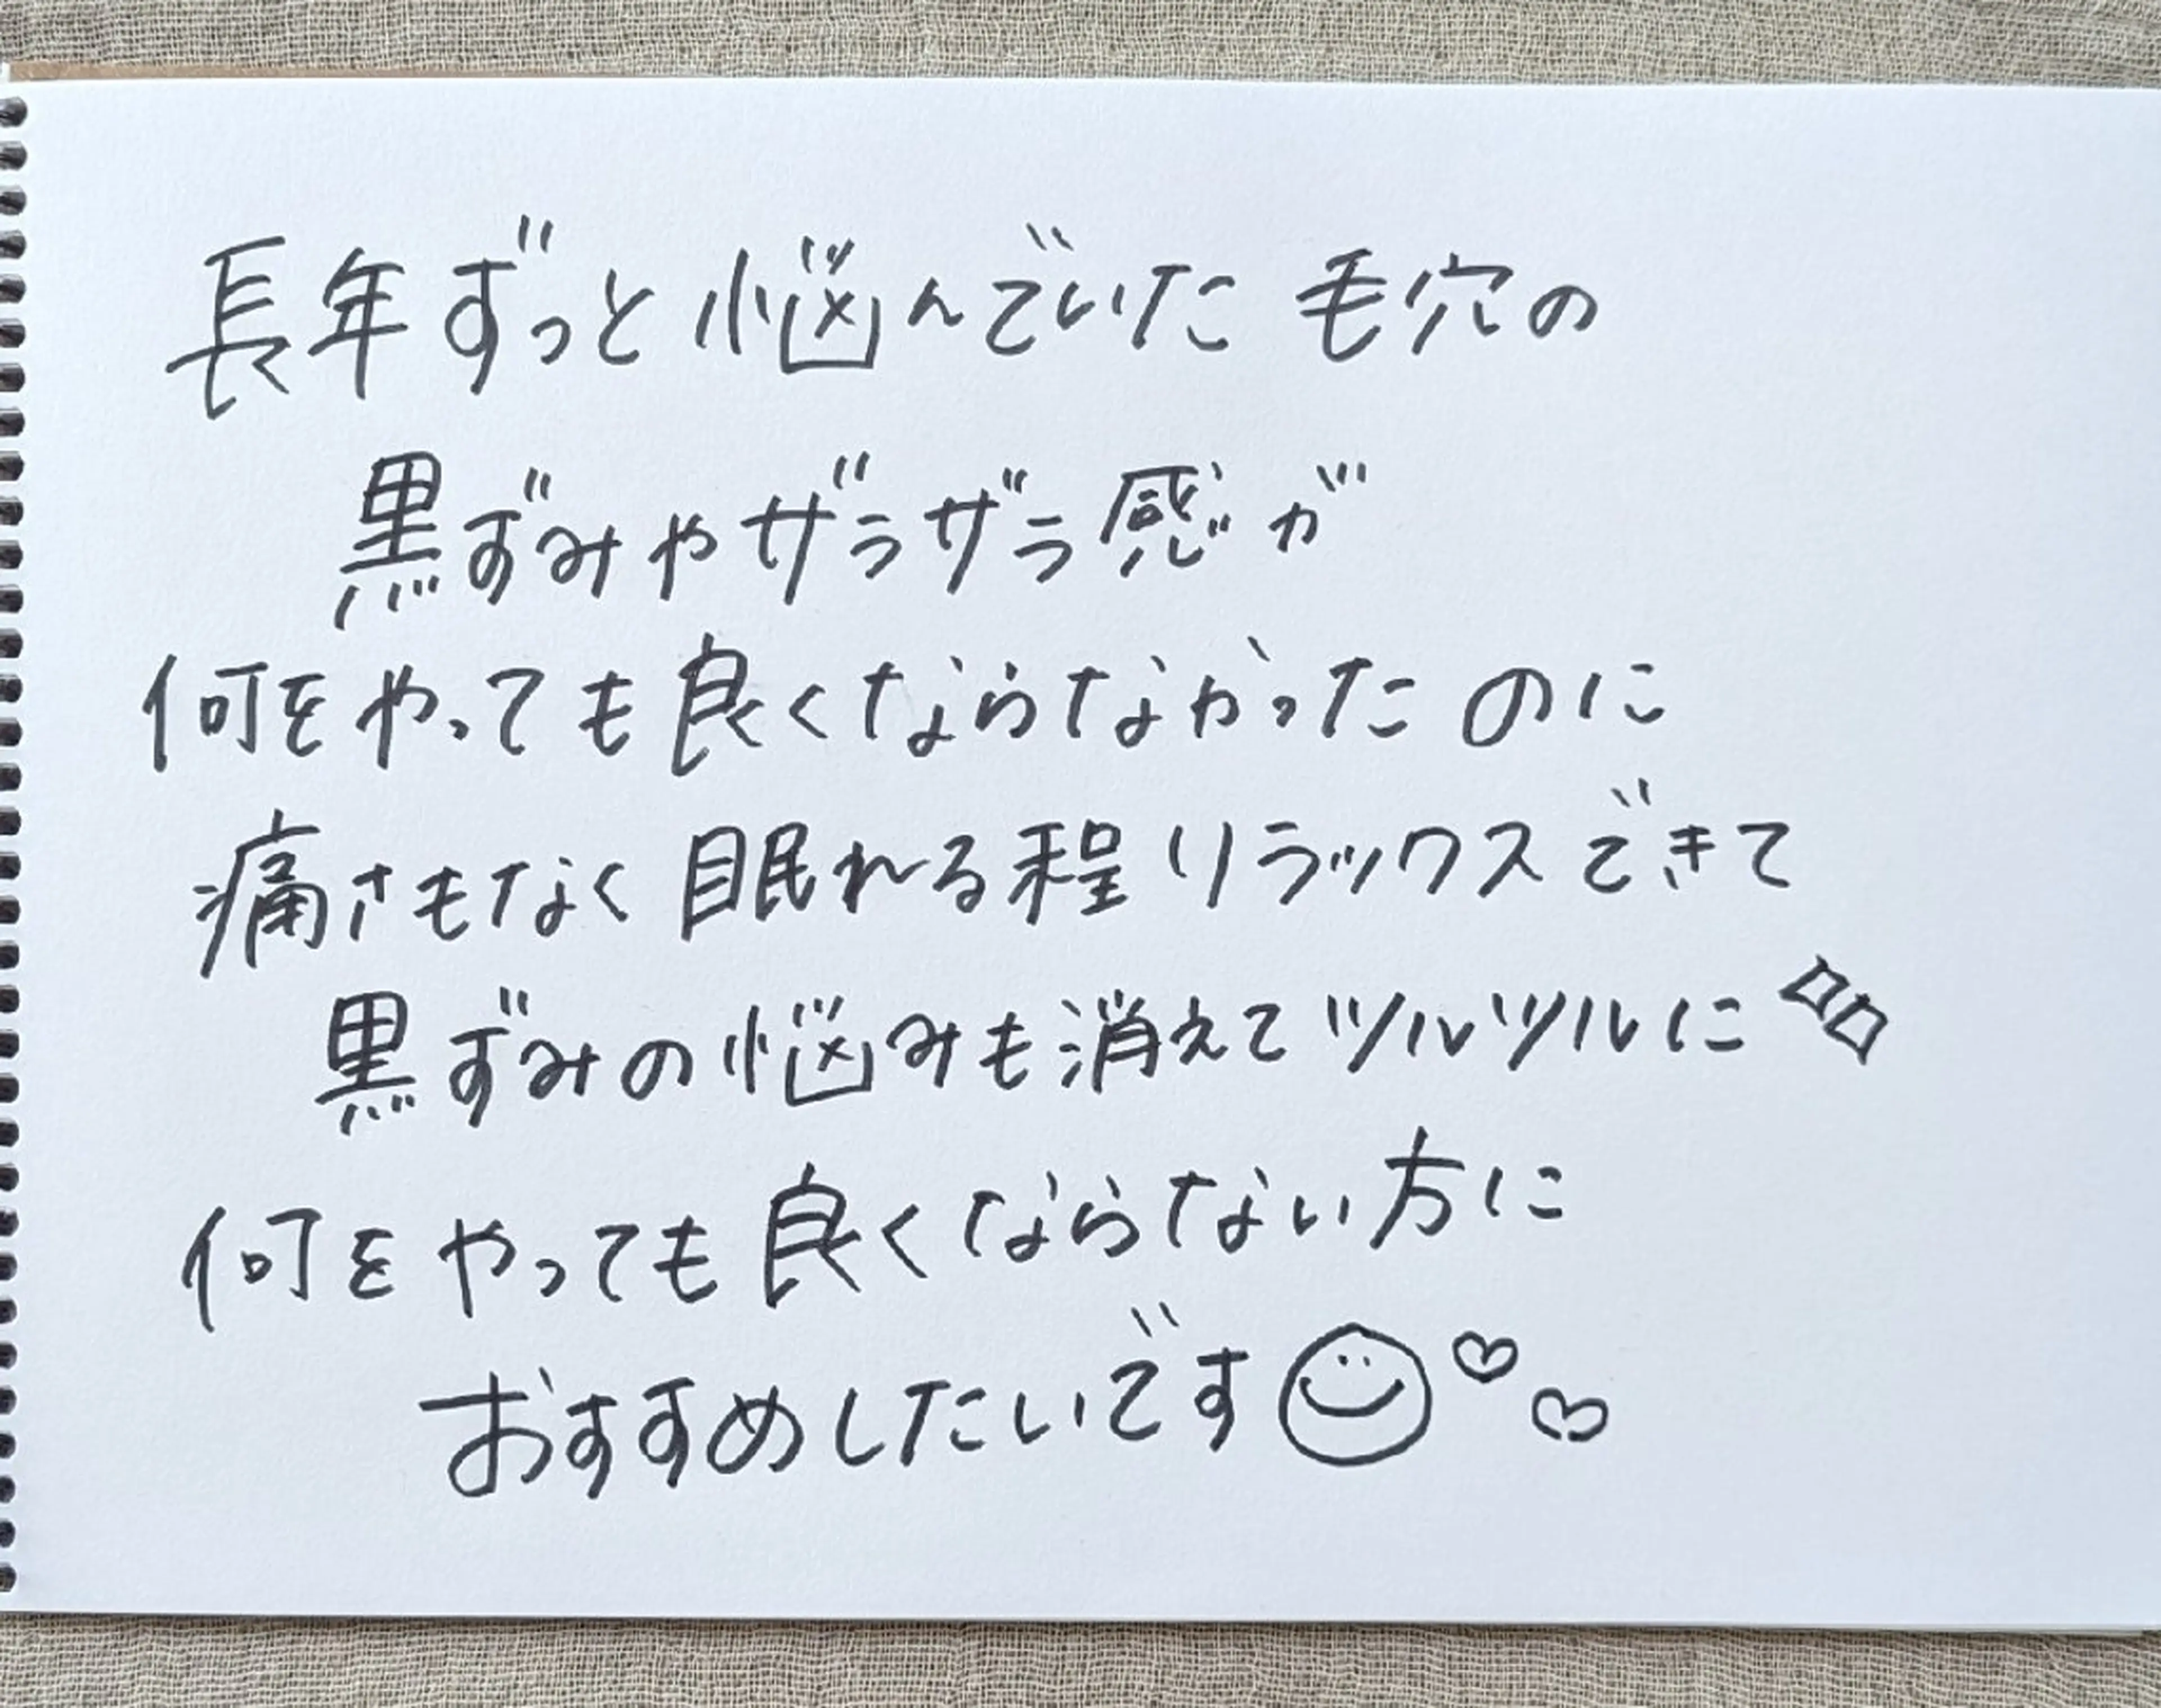 長年ずっと悩んでいた毛穴の
黒ずみやザラザラ感が
何をやっても良くならなかったのに
痛さもなく眠れる程リラックスできて
黒ずみの悩みも消えてツルツルに
何をやっても良くならない方に
おすすめしたいです